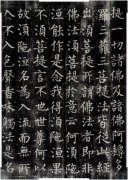 提一切諸佛及諸佛阿耨多
羅三藐三菩提法皆從此經
出須菩提所謂佛法者即非
佛法須菩提於意云何須陀
洹能作是念我得須陀洹果
不須菩提言不也世尊何以
故須陀洹名為入流而無所
入不入色聲香味觸法是名